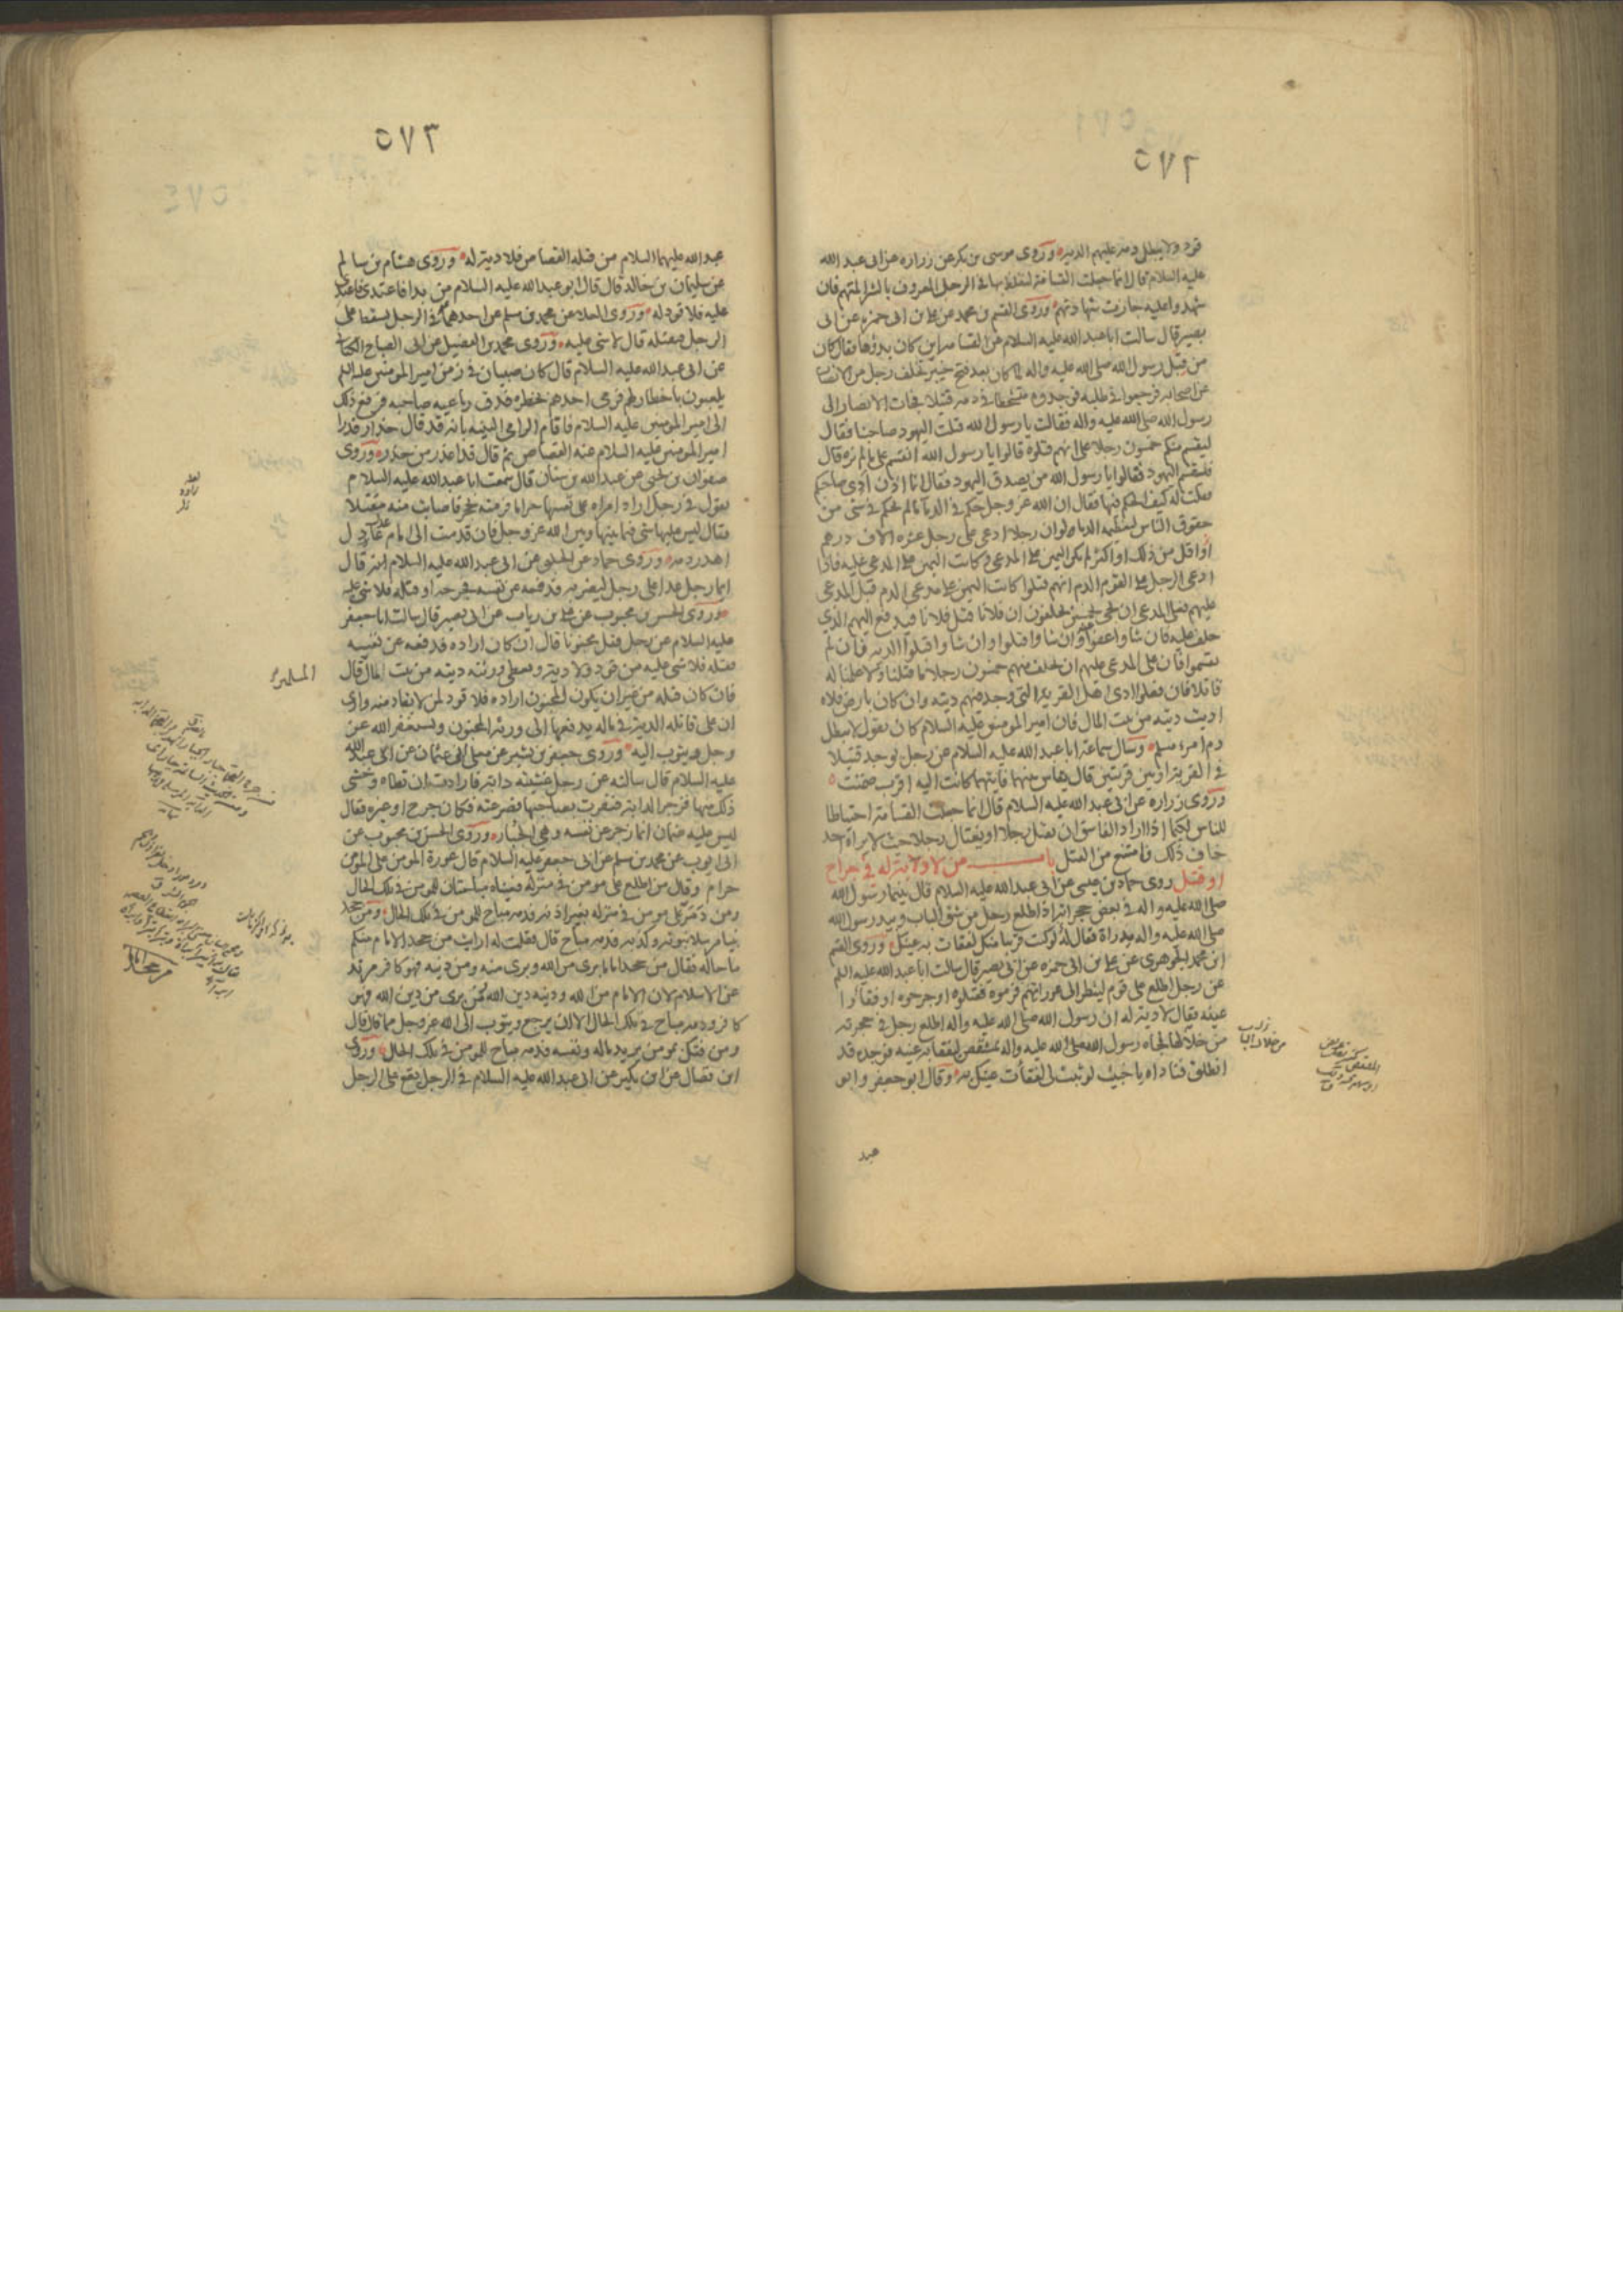 ٥٧٢
قود ولا يبطل دمه عليهم الدية وروى موسى بن بكر عن زراره عن ابى عبد الله
عليه السلام قال انما جعلت القسامة ليغلظ بها فى الرجل المعروف بالشر المتهم فان
شهدوا عليه جازت شهادتهم وروى القسم بن محمد عن على بن ابى حمزه عن ابى
بصير قال سالت ابا عبد الله عليه السلام عن القسامه اين كان بدؤها فقال كان
من قبل رسول الله صلى الله عليه واله لما كان بعد فتح خيبر تخلف رجل من الانصار
عن اصحابه فرجعوا فى طلبه فوجدوه متشحطا فى دمه قتيلا فجات الانصار الى
رسول الله صلى الله عليه واله فقالت يا رسول الله قتلت اليهود صاحبنا فقال
ليقسم منكم خمسون رجلا على انهم قتلوه قالوا يا رسول الله انقسم على ما لم نره قال
فليقسم اليهود فقالوا يا رسول الله من يصدق اليهود فقال انا الان ادى صاحبكم
فقلت له كيف الحكم فيها فقال ان الله عز وجل حكم فى الدماء ما لم يحكم فى شى من
حقوق الناس لتعظيمه الدماء لو ان رجلا ادعى على رجل عشره الاف درهم
او اقل من ذلك او اكثر لم يكن اليمين على المدعى وكانت اليمين على المدعى عليه فاذا
ادعى الرجل على القوم الدم انهم قتلوا كانت اليمين على مدعى الدم قبل المدعى
عليهم فعلى المدعى ان يجى بخمسين يحلفون ان فلانا قتل فلانا فيدفع اليهم الذى
حلف عليه فان شاوا عفوا وان شاوا قتلوا وان شاوا قبلوا الدية فان لم
يقسموا فان على المدعى عليهم ان يحلف منهم خمسون رجلا ما قتلنا ولا علمنا له
قاتلا فان فعلوا ادى اهل القرية التى وجد فيهم ديته وان كان بارض فلاه
اديت ديته من بيت المال فان امير المومنين عليه السلام كان يقول لا يبطل
دم امرء مسلم وسال سماعة ابا عبد الله عليه السلام عن رجل يوجد قتيلا
فى القرية او بين قريتين قال يقاس بينهما فايتهما كانت اليه اقرب ضمنت
وروى زراره عن ابى عبد الله عليه السلام قال انما جعلت القسامة احتياطا
للناس لكيما اذا اراد الفاسق ان يقتل رجلا او يغتال رجلا حيث لا يراه احد
خاف ذلك فامتنع من القتل باب من لا دية له فى جراح
او قتل روى حماد بن عيسى عن ابى عبد الله عليه السلام قال بينما رسول الله
صلى الله عليه واله فى بعض حجراته اذ اطلع رجل من شق الباب وبيد رسول الله
صلى الله عليه واله مدراة فقال له لو كنت قريبا منك لفقات به عينك وروى القسم
ابن محمد الجوهرى عن على بن ابى حمزه عن ابى بصير قال سالت ابا عبد الله عليه السلم
عن رجل اطلع على قوم لينظر الى عوراتهم فرموه فقتلوه او جرحوه او فقأوا
عينه فقال لا دية له ان رسول الله صلى الله عليه واله اطلع رجل فى حجرته
من خلالها فجاه رسول الله صلى الله عليه واله بمشقص ليفقا به عينه فوجده قد
انطلق فناداه يا خبيث لو ثبت لى لفقأت عينك به وقال ابو جعفر وابو
عبد
٥٧٣
عبد الله عليهما السلام من قتله القصاص فلا دية له وروى هشام بن سالم
عن سليمان بن خالد قال قال ابو عبد الله عليه السلام من بدا فاعتدى فاعتدى
عليه فلا قود له وروى العلا عن محمد بن مسلم عن احدهما فى الرجل يسقط على
الرجل فيقتله قال لا شى عليه وروى محمد بن الفضيل عن ابى الصباح الكنانى
عن ابى عبد الله عليه السلام قال كان صبيان فى زمن امير المومنين عليه السلم
يلعبون باخطار لهم فرمى احدهم بخطره فدق رباعيه صاحبه فرفع ذلك
الى امير المومنين عليه السلام فاقام الرامى البينه بانه قد قال حذار فدرا
امير المومنين عليه السلام عنه القصاص ثم قال قد اعذر من حذر وروى
صفوان بن يحيى عن عبد الله بن سنان قال سمعت ابا عبد الله عليه السلام
يقول فى رجل اراد امراه على نفسها حراما فرمته بحجر فاصابت منه مقتلا
فقال ليس عليها شى فيما بينها وبين الله عز وجل فان قدمت الى امام عادل
اهدر دمه وروى حماد عن الحلبى عن ابى عبد الله عليه السلام انه قال
ايما رجل عدا على رجل ليضربه فدفعه عن نفسه فجرحه او قتله فلا شى عليه
وروى الحسن بن محبوب عن على بن رياب عن ابى بصير قال سالت ابا جعفر
عليه السلام عن رجل قتل مجنونا قال ان كان اراده فدفعه عن نفسه
فقتله فلا شى عليه من قود ولا دية ويعطى ورثته ديته من بيت المال قال
فان كان قتله من غير ان يكون المجنون اراده فلا قود لمن لا يقاد منه وارى
ان على قاتله الدية فى ماله يدفعها الى ورثة المجنون ويستغفر الله عز
وجل ويتوب اليه وروى جعفر بن بشير عن معلى ابى عثمان عن ابى عبد الله
عليه السلام قال سالته عن رجل غشيته دابة فارادت ان تطاه وخشى
ذلك منها فزجر الدابة فنفرت بصاحبها فصرعته فكان جرح او غيره فقال
ليس عليه ضمان انما زجر عن نفسه وهى الجبار وروى الحسن بن محبوب عن
ابى ايوب عن محمد بن مسلم عن ابى جعفر عليه السلام قال عورة المومن على المومن
حرام وقال من اطلع على مومن فى منزله فعيناه مباحتان للمومن فى تلك الحال
ومن دمر على مومن فى منزله بغير اذنه فدمه مباح للمومن فى تلك الحال ومن جحد
نبيا مرسلا نبوته وكذبه فدمه مباح قال فقلت له ارايت من جحد الامام منكم
ما حاله فقال من جحد اماما برى من الله وبرى منه ومن دينه فهو كافر مرتد
عن الاسلام لان الامام من الله ودينه دين الله ومن برى من دين الله فهو
كافر ودمه مباح فى تلك الحال الا ان يرجع ويتوب الى الله عز وجل مما قال قال
ومن فتك بمومن يريد ماله ونفسه فدمه مباح للمومن فى تلك الحال وروى
ابن فضال عن ابن بكير عن ابى عبد الله عليه السلام فى الرجل يقع على الرجل